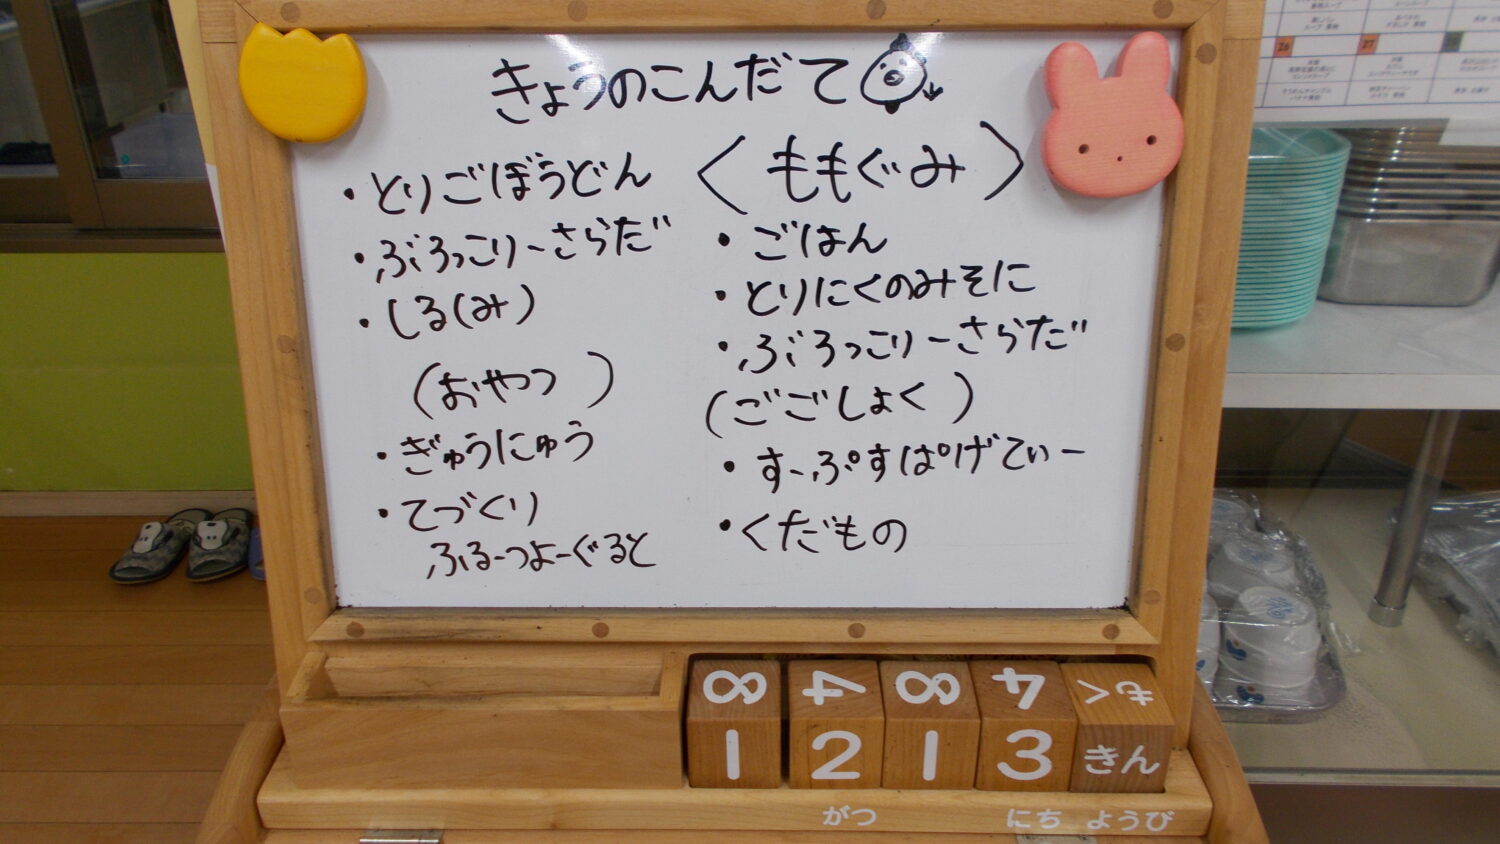 きょうのこんだて
・とりごぼうどん
・ぶろっこりーさらだ
・しる(み)
(おやつ)
・ぎゅうにゅう
・てづくり
ふるーつよーぐると
〈ももぐみ〉
・ごはん
・とりにくのみそに
・ぶろっこりーさらだ
(ごごしょく)
・すーぷすぱげてぃー
・くだもの
8 4 8 4 もく
1 2 1 3 きん
がつ にち ようび
26 27